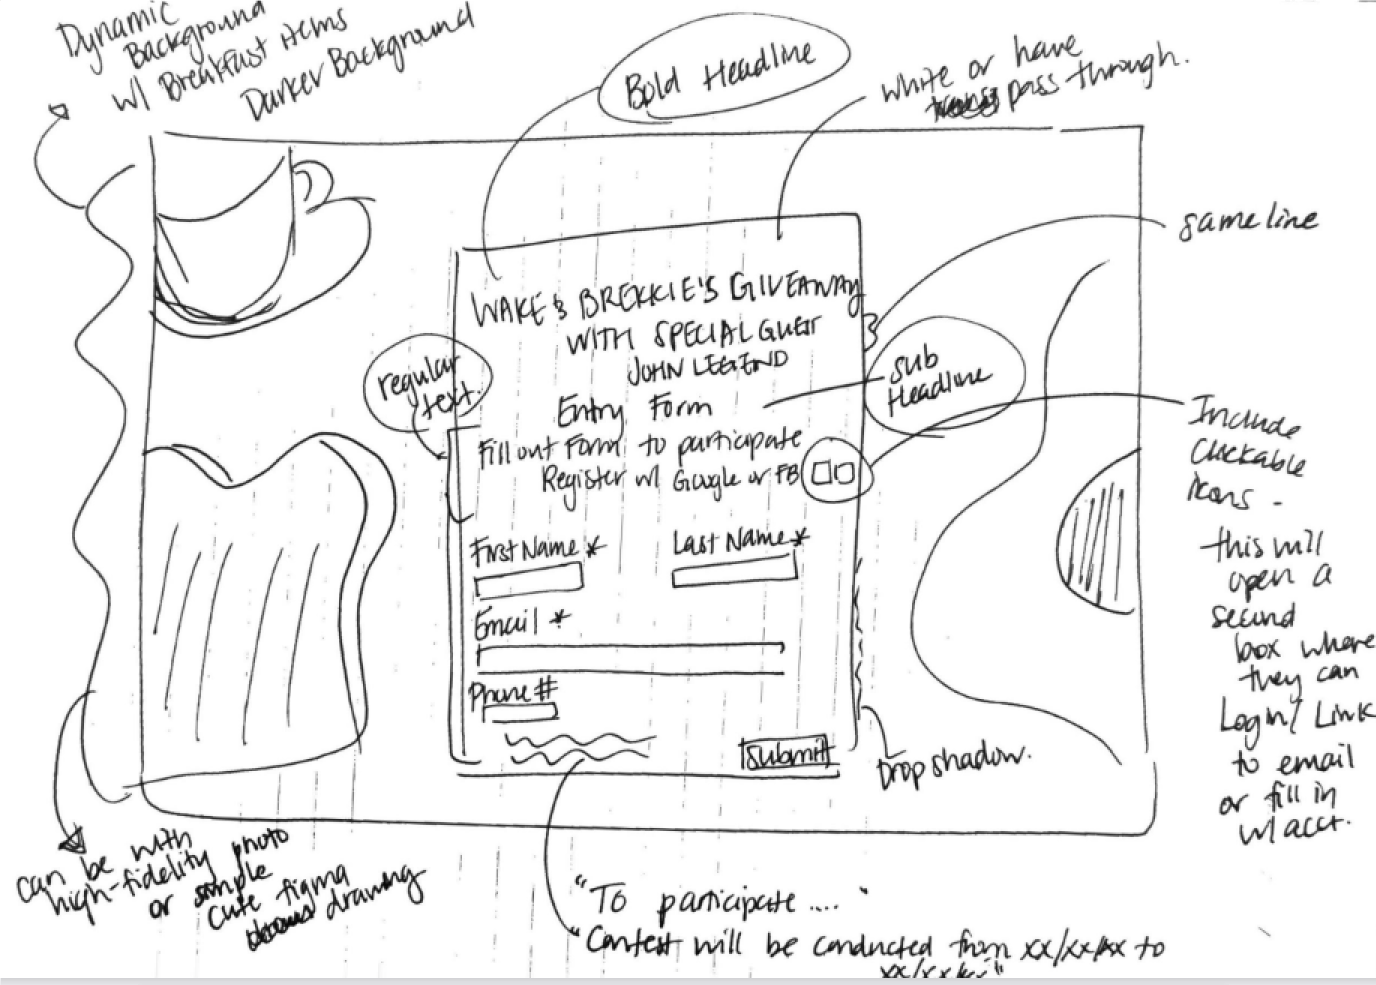 Dynamic
Background
w/ Breakfast items
Darker Background
Bold Headline
white or have
pass through.
same line
WAKE & BREKKIE'S GIVEAWAY
WITH SPECIAL GUEST
JOHN LEGEND
sub
Headline
regular
text.
Entry Form
Fill out Form to participate
Register w/ Google or FB
Include
Clickable
icons -
this will
open a
second
box where
they can
Login/Link
to email
or fill in
w/ acct.
First Name *
Last Name *
Email *
Phone #
Submit
Drop shadow.
can be with
high-fidelity photo
or simple
cute figma
drawing
"To participate .... "
"Contest will be conducted from xx/xx/xx to
xx/xx/xx"